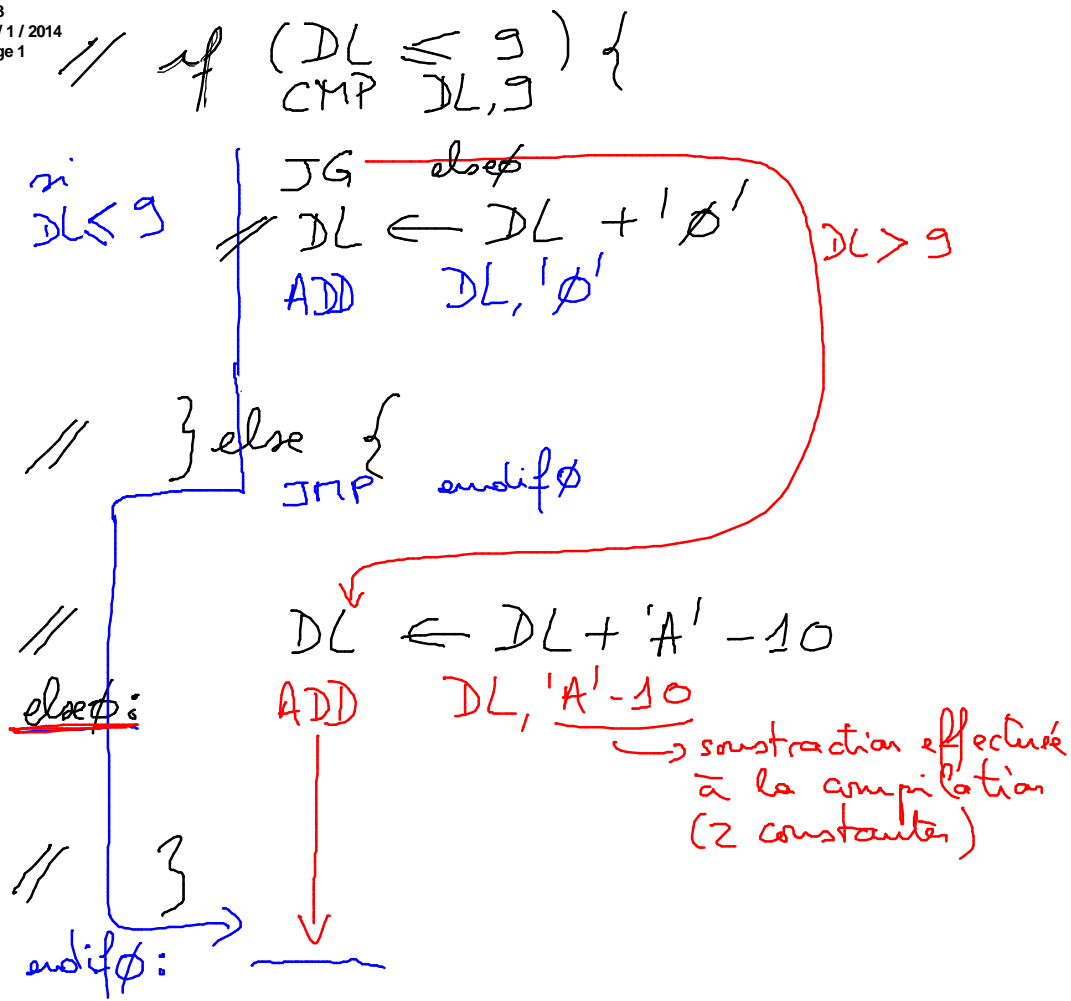 3
/ 1 / 2014
ge 1
// if (DL ≤ 9) {
CMP DL, 9
JG elseØ
si
DL ≤ 9
// DL ← DL + 'Ø'
DL > 9
ADD DL, 'Ø'
// } else {
JMP endifØ
// DL ← DL + 'A' - 10
elseØ: ADD DL, 'A' - 10
soustraction effectuée
à la compilation
(2 constantes)
// }
endifØ: